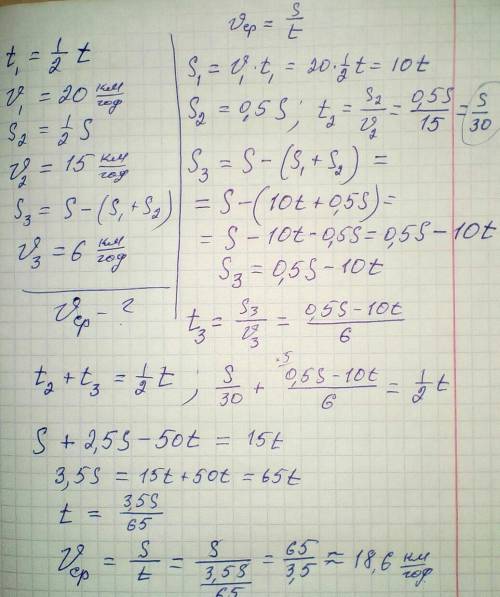 t₁ = 1/2 t
v₁ = 20 км/год
S₂ = 1/2 S
v₂ = 15 км/год
S₃ = S − (S₁ + S₂)
v₃ = 6 км/год
vср − ?
vср = S/t
S₁ = v₁ · t₁ = 20 · 1/2 t = 10t
S₂ = 0,5S ; t₂ = S₂/v₂ = 0,5S/15 = S/30
S₃ = S − (S₁ + S₂) =
= S − (10t + 0,5S) =
= S − 10t − 0,5S = 0,5S − 10t
S₃ = 0,5S − 10t
t₃ = S₃/v₃ = (0,5S − 10t)/6
t₂ + t₃ = 1/2 t ; S/30 + ·5 (0,5S − 10t)/6 = 1/2 t
S + 2,5S − 50t = 15t
3,5S = 15t + 50t = 65t
t = 3,5S/65
vср = S/t = S/(3,5S/65) = 65/3,5 ≈ 18,6 км/год